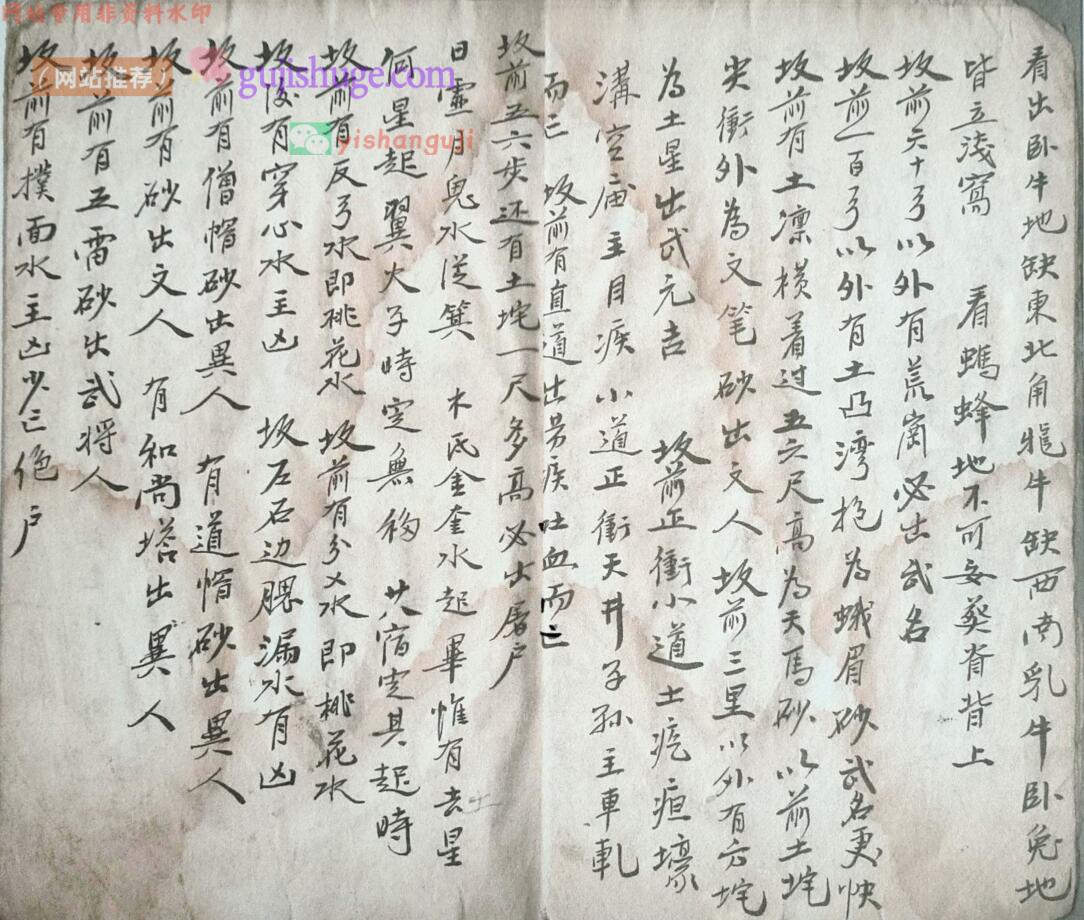 看出卧牛地缺東北角驣牛缺西南乳牛卧兔地
皆立淺窩 看螞蜂地不可妄葬脊背上
坟前六十弓以外有荒崗必出武名
坟前一百弓以外有土凸灣抱為蛾眉砂武名更快
坟前有土凛横着过五六尺高為天馬砂以前土垞
尖衝外為文笔 砂出文人 坟前三里以外有方垞
為土星出武元吉 坟前正衝小道土疙疸壕
溝空庙主目疾小道正衝天井子孙主車軋
而亡 坟前有直道出劳疾吐血而亡
坟前五六步还有土垞一尺多高必出屠户
日虚月鬼水从箕 木氐金奎水起畢惟有去星
何星起翼火子時定無移 廿八宿定具起時
坟前有反弓水即桃花水 坟前有分乂水即桃花水
坟後有穿心水主凶 坟左右边腮漏水有凶
坟前有僧帽砂出異人 有道帽砂出異人
坟前有砂出文人 有和尚塔出異人
坟前有五雷砂出武将人
坟前有撲面水主凶少亡绝户
网站专用非资料水印
(网站推荐)
guishuge.com
yishanguji